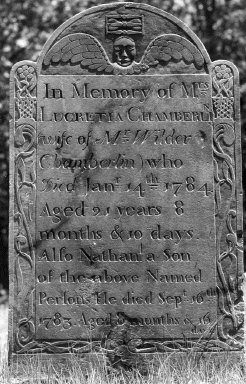 In Memory of Mrs
LUCRETIA CHAMBERLN
wife of Mr Wilder
Chamberlin) who
Died Janr. 14th 1784
Aged 21 years 8
months & 10 days
Alſo Nathanl a Son
of the above Named
Perſons He died Sept 16th
1783. Aged 8 months & 16
ds